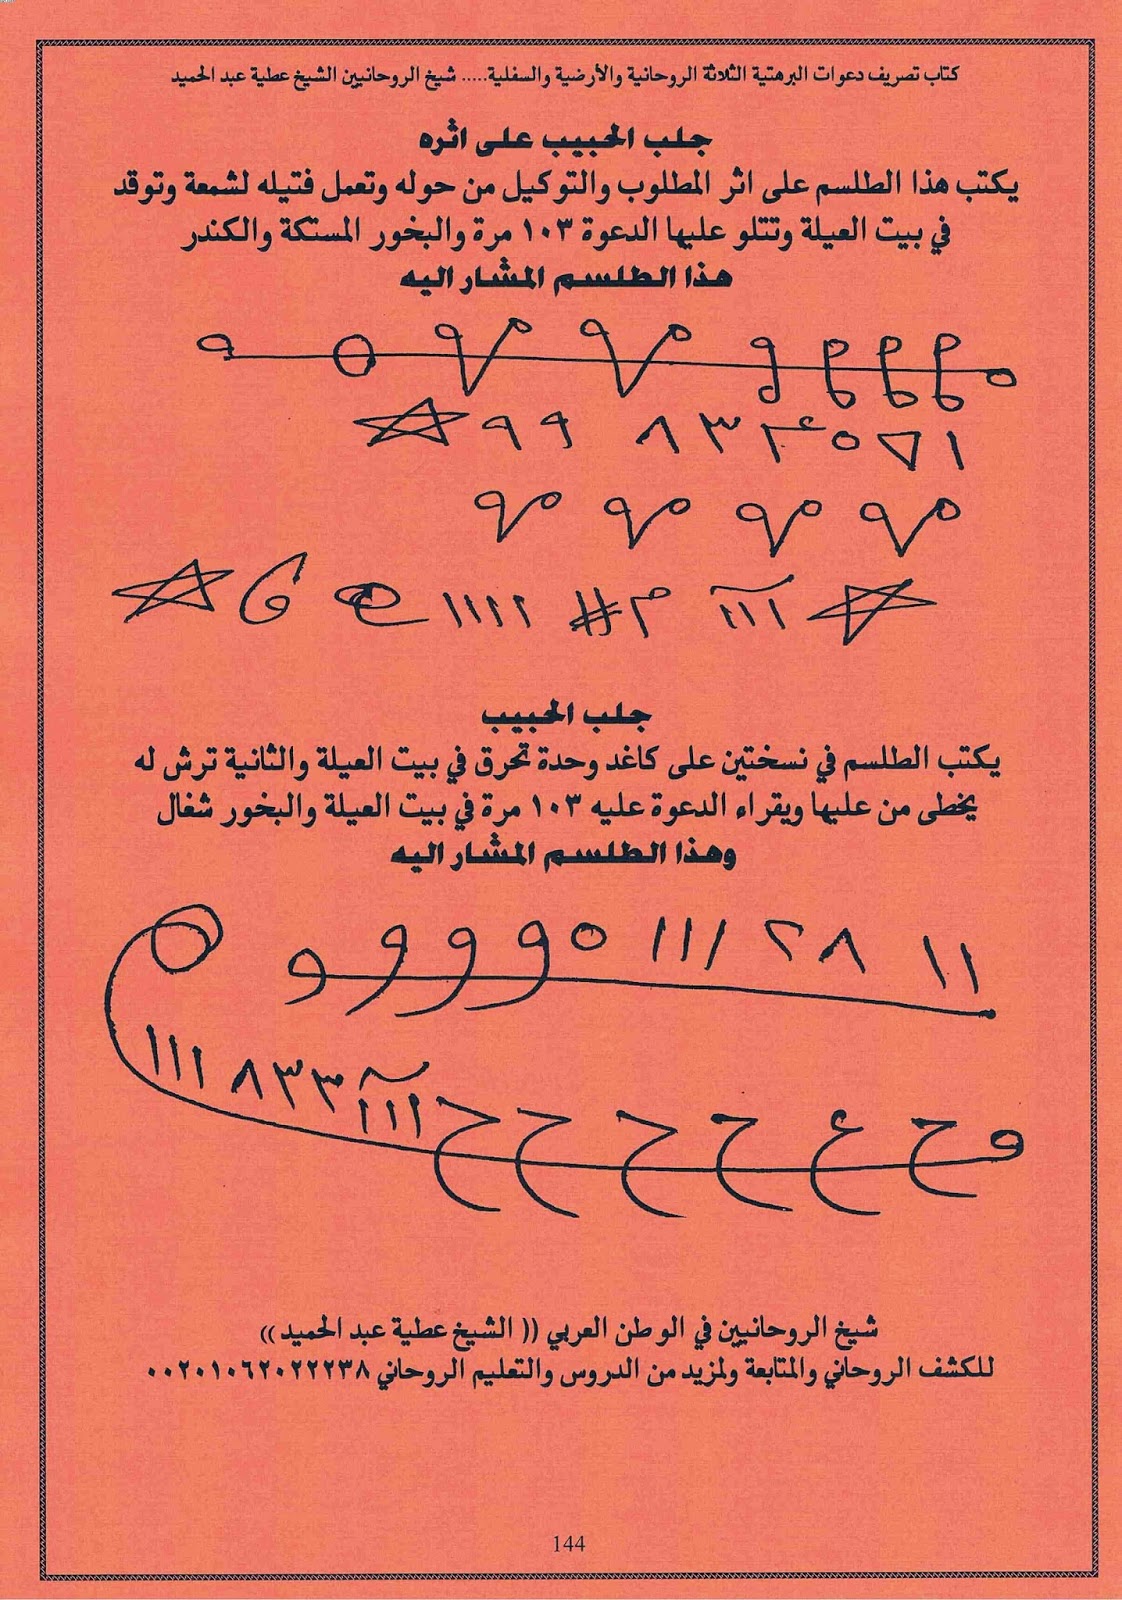 كتاب تصريف دعوات البرهتية الثلاثة الروحانية والأرضية والسفلية..... شيخ الروحانيين الشيخ عطية عبد الحميد
جلب الحبيب على اثره
يكتب هذا الطلسم على اثر المطلوب والتوكيل من حوله وتعمل فتيله لشمعة وتوقد
في بيت العيلة وتتلو عليها الدعوة ١٠٣ مرة والبخور المستكة والكندر
هذا الطلسم المشار اليه
جلب الحبيب
يكتب الطلسم في نسختين على كاغد وحدة تحرق في بيت العيلة والثانية ترش له
يخطى من عليها ويقراء الدعوة عليه ١٠٣ مرة في بيت العيلة والبخور شغال
وهذا الطلسم المشار اليه
شيخ الروحانيين في الوطن العربي (( الشيخ عطية عبد الحميد ))
للكشف الروحاني والمتابعة ولمزيد من الدروس والتعليم الروحاني ٠٠٢٠١٠٦٢٠٢٢٢٣٨
144